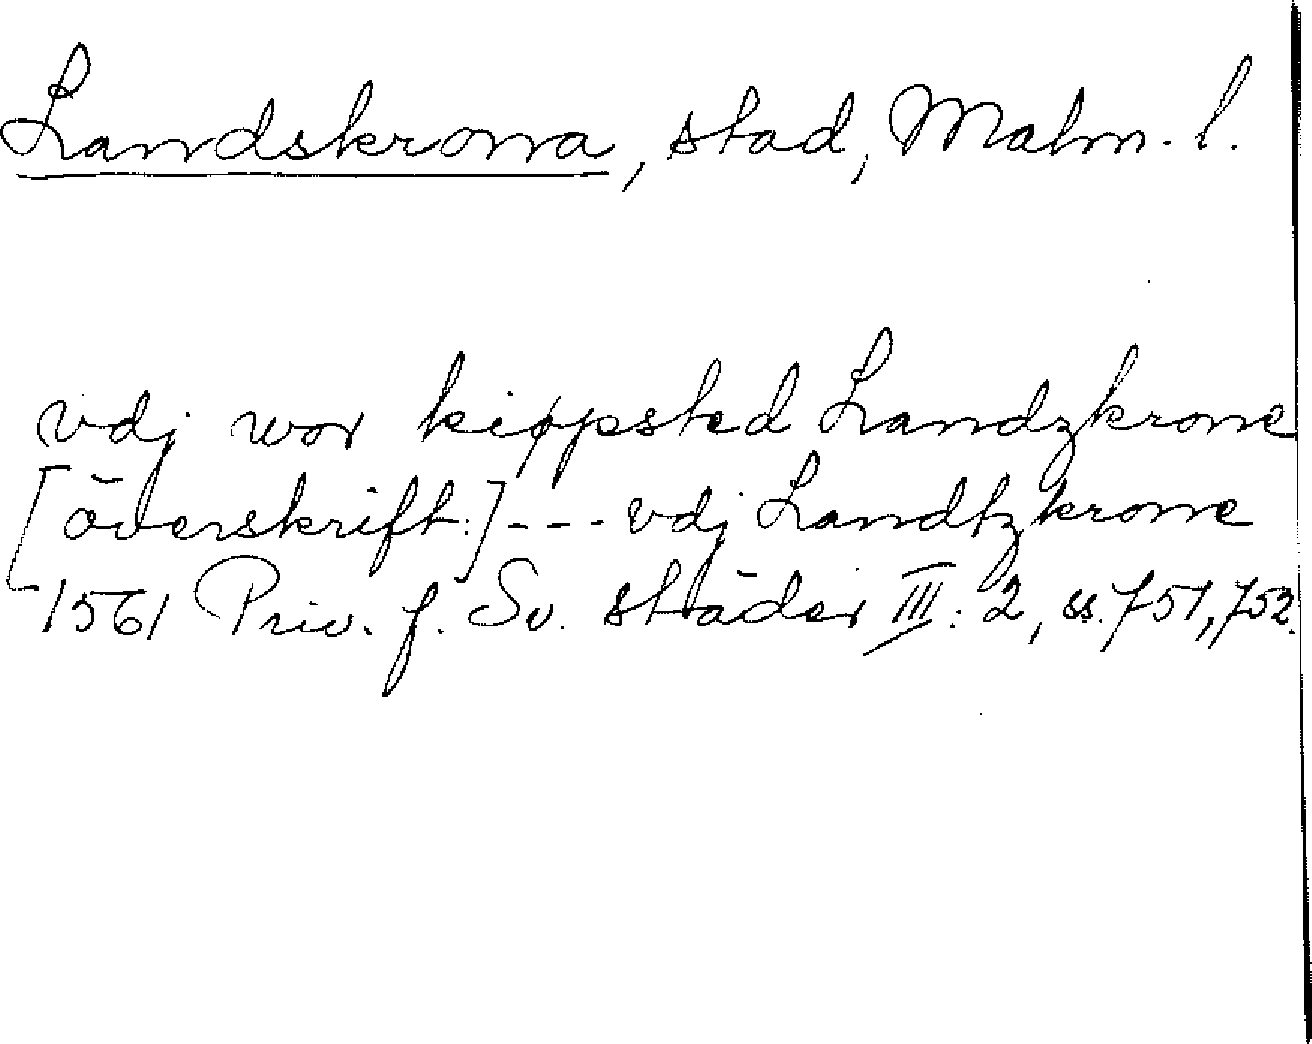 Landskrona, stad, Malm. l.
vdj wor kiøpsted Landzkrone
[överskift:] --- vdj Landtzkrone
1561 Priv. f. Sv. städer III: 2, ss. 751, 752.